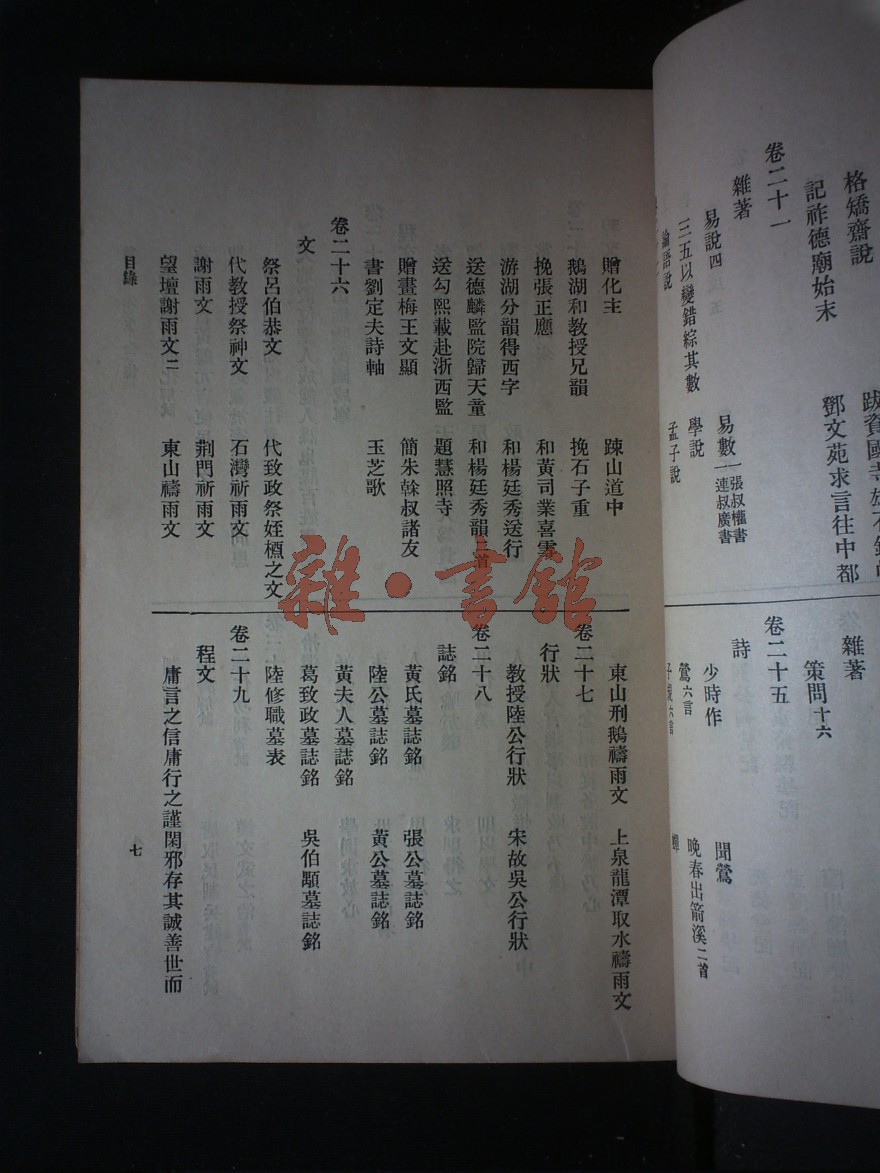 格矯齋說
記祚德廟始末
鄧文苑求言往中都
卷二十一
雜著
易說四
易數一張叔權書一連叔廣書
三五以變錯綜其數
學說
論語說
孟子說
雜著
策問十六
卷二十五
詩
少時作
聞鶯
鶯六言
晚春出箭溪二首
蟬
贈化主
踈山道中
鵝湖和教授兄韻
挽石子重
挽張正應
和黃司業喜雪
游湖分韻得西字
和楊廷秀送行
送德麟監院歸天童
和楊廷秀韻二首
送勾熙載赴浙西監
題慧照寺
贈畫梅王文顯
簡朱榦叔諸友
書劉定夫詩軸
玉芝歌
卷二十六
文
祭呂伯恭文
代致政祭姪槱之文
代教授祭神文
石灣祈雨文
謝雨文
荆門祈雨文
望壇謝雨文二
東山禱雨文
東山刑鵝禱雨文
上泉龍潭取水禱雨文
卷二十七
行狀
教授陸公行狀
宋故吳公行狀
卷二十八
誌銘
黃氏墓誌銘
張公墓誌銘
陸公墓誌銘
黃公墓誌銘
黃夫人墓誌銘
葛致政墓誌銘
吳伯顒墓誌銘
陸修職墓表
卷二十九
程文
庸言之信庸行之謹閑邪存其誠善世而
目錄
七
雜·書館